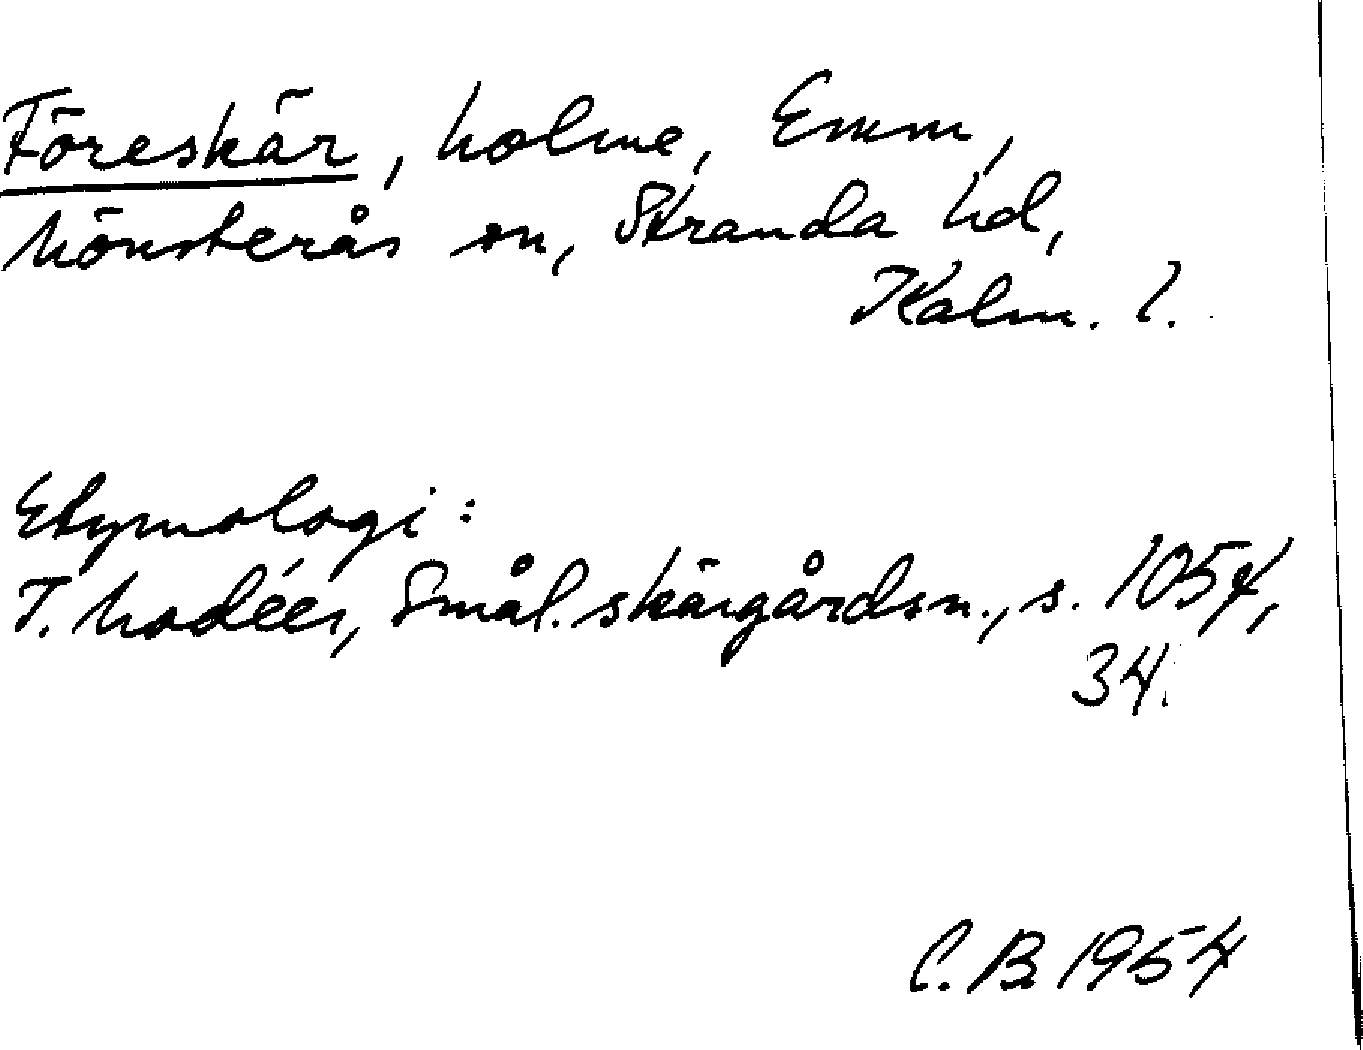 Föreskär, holme, Emm,
Mönsterås sn, Stranda hd,
Kalm. l.
Etymologi:
T. Modéer, Smål. skärgårdsn., s. 1054,
34.
C. B. 1954